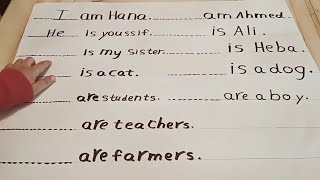 I am Hana. ........ am Ahmed.
He is youssif. ........ is Ali.
........ is my sister. ........ is Heba.
........ is a cat. ........ is a dog.
........ are students. ........ are a boy.
........ are teachers.
........ are farmers.